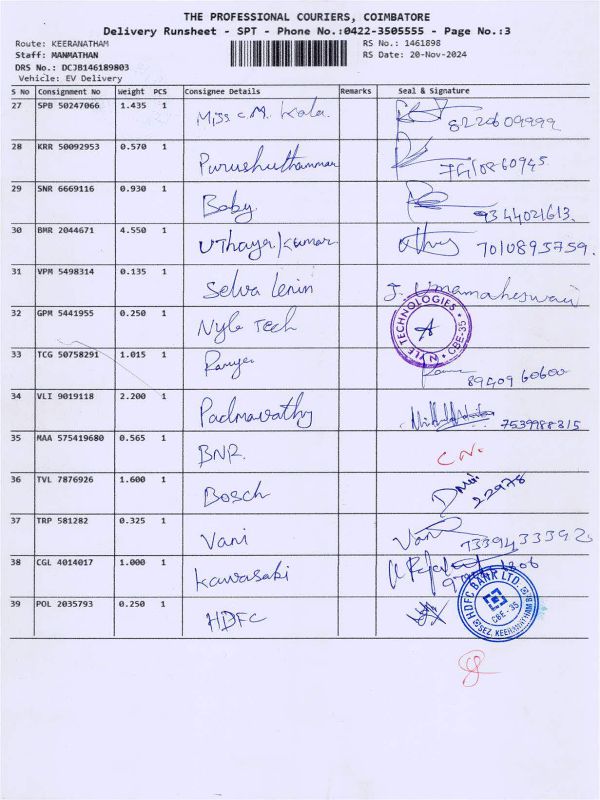 THE PROFESSIONAL COURIERS, COIMBATORE
Delivery Runsheet - SPT - Phone No.:0422-3505555 - Page No.:3
Route: KEERANATHAM RS No.: 1461898
Staff: MANMATHAN RS Date: 20-Nov-2024
DRS No.: DCJB146189803
Vehicle: EV Delivery
S No Consignment No Weight PCS Consignee Details Remarks Seal & Signature
27 SPB 50247066 1.435 1 Miss C.M. Kala. 8220609999
28 KRR 50092953 0.570 1 Purushuthamman 7410860945
29 SNR 6669116 0.930 1 Baby 9344021613.
30 BMR 2044671 4.550 1 Uthaya kumar 7010895759.
31 VPM 5498314 0.135 1 Selva Lenin J. Umamaheswari
32 GPM 5441955 0.250 1 Nyle Tech NYLE TECHNOLOGIES CBE-35
33 TCG 50758291 1.015 1 Ramya 8940960600
34 VLI 9019118 2.200 1 Padmavathy 7539988315
35 MAA 575419680 0.565 1 BNR C.N.
36 TVL 7876926 1.600 1 Bosch 22978
37 TRP 581282 0.325 1 Vani Vani 7339433392
38 CGL 4014017 1.000 1 Kawasaki
39 POL 2035793 0.250 1 HDFC HDFC BANK LTD. CBE-35 SEZ, KEERANATHAM